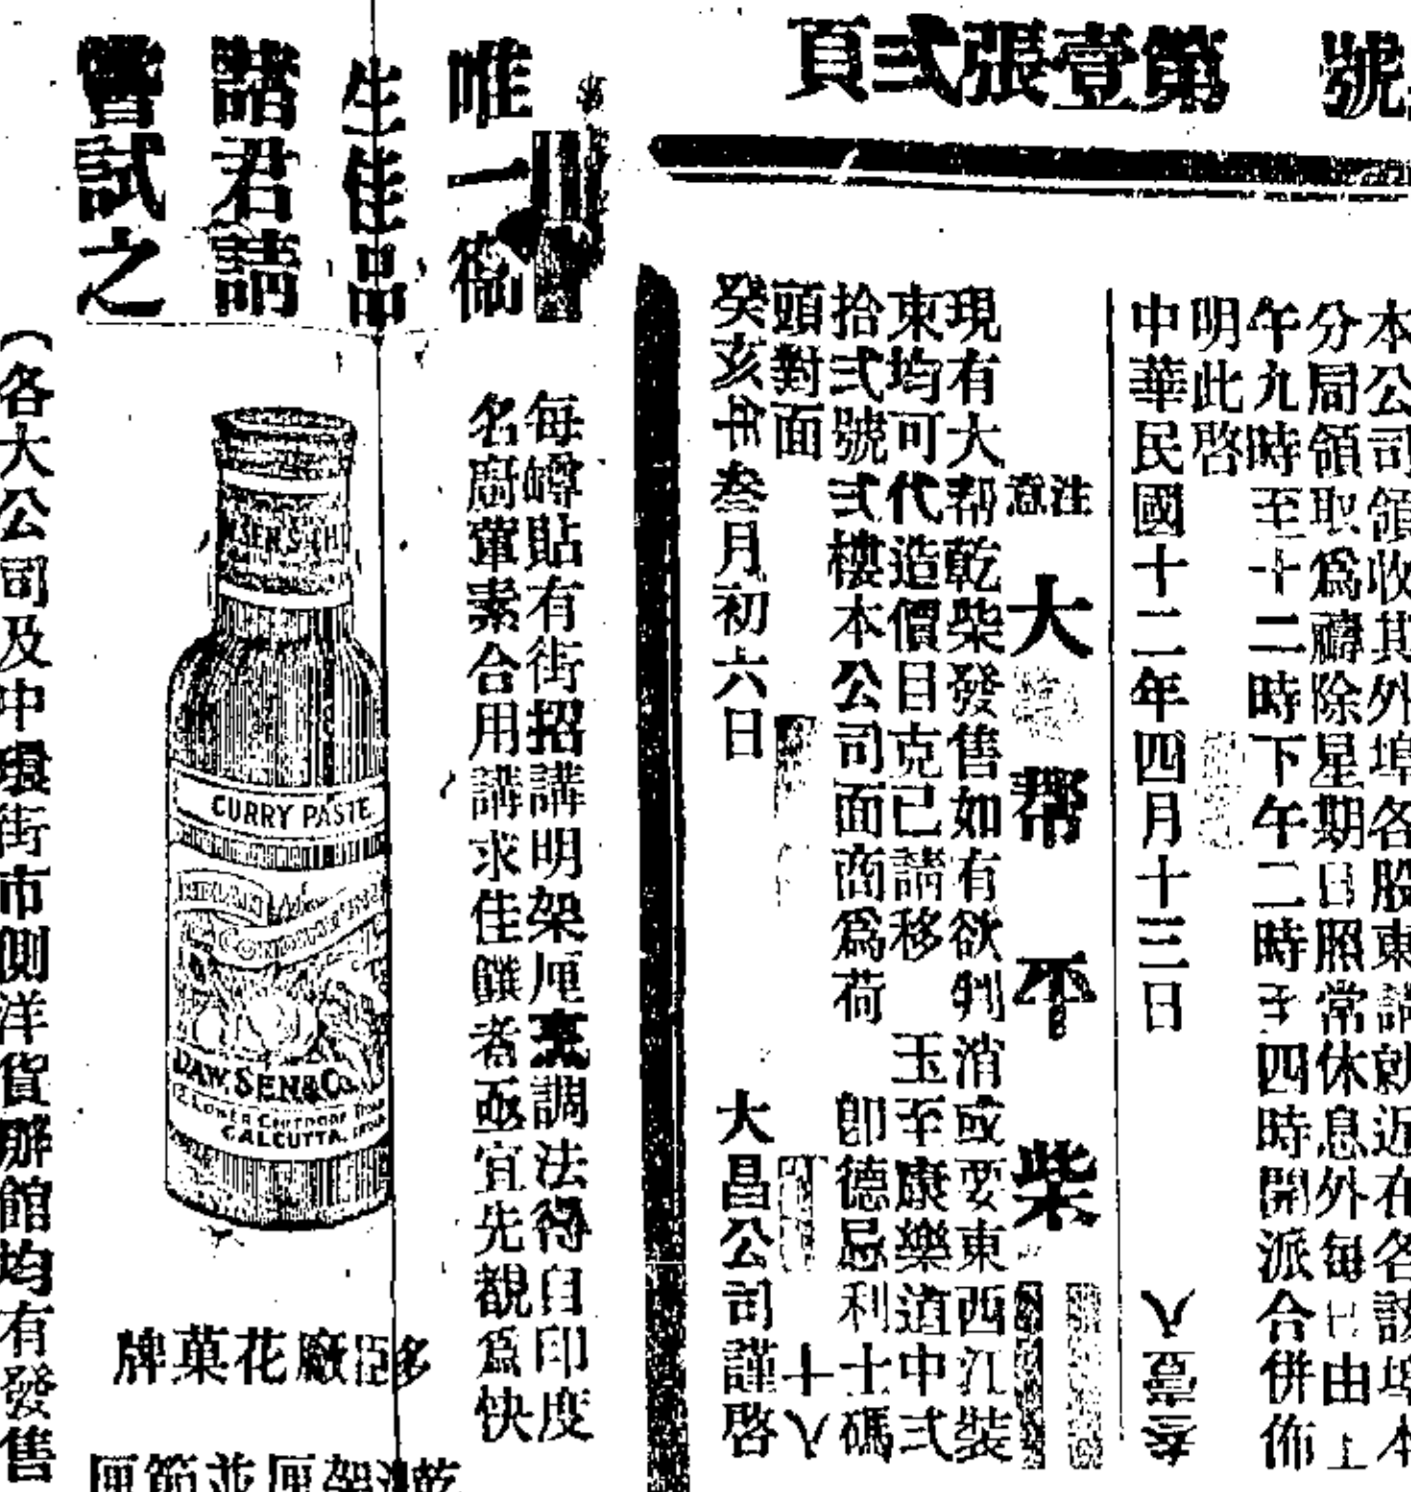 號 第壹張弍頁
本公司領收其外埠各股東請就近在各該埠本
分局領取爲禱除星期日照常休息外每日由上
午九時至十二時下午二時至四時開派合併佈
明此啓
中華民國十二年四月十三日
八壹叁
注意
大帮平柴
現有大帮乾柴發售如有欲列消或要東西江裝
東均可代造價目克己請移 玉至康樂道中弍
拾弍號弍樓本公司面商爲荷 卽德忌利士碼
頭對面
十八
癸亥年叁月初六日 大昌公司謹啓
唯一衞
生佳品
諸君請
嘗試之
每罇貼有街招講明架厘烹調法得自印度
名廚葷素合用講求佳饌者亟宜先覩爲快
CURRY PASTE
DAW, SEN & Co.
CALCUTTA
多臣廠花菓牌
架厘並節厘
(各大公司及中環街市側洋貨辦館均有發售